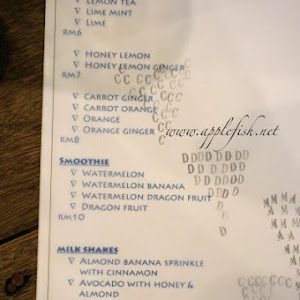 Lemon Tea
Lime Mint
Lime
RM6
Honey Lemon
Honey Lemon Ginger
RM7
Carrot Ginger
Carrot Orange
Orange
Orange Ginger
RM8
www.applefish.net
Smoothie
Watermelon
Watermelon Banana
Watermelon Dragon Fruit
Dragon Fruit
RM10
Milk Shakes
Almond Banana Sprinkle
with Cinnamon
Avocado with Honey &
Almond